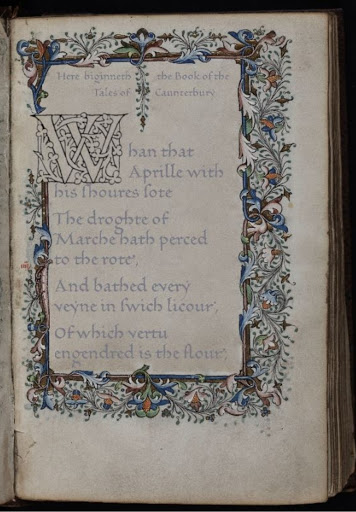 Here biginneth the Book of the
Tales of Caunterbury
Whan that
Aprille with
his ſhoures ſote
The droghte of
Marche hath perced
to the rote,
And bathed every
veyne in ſwich licour,
Of which vertu
engendred is the flour,